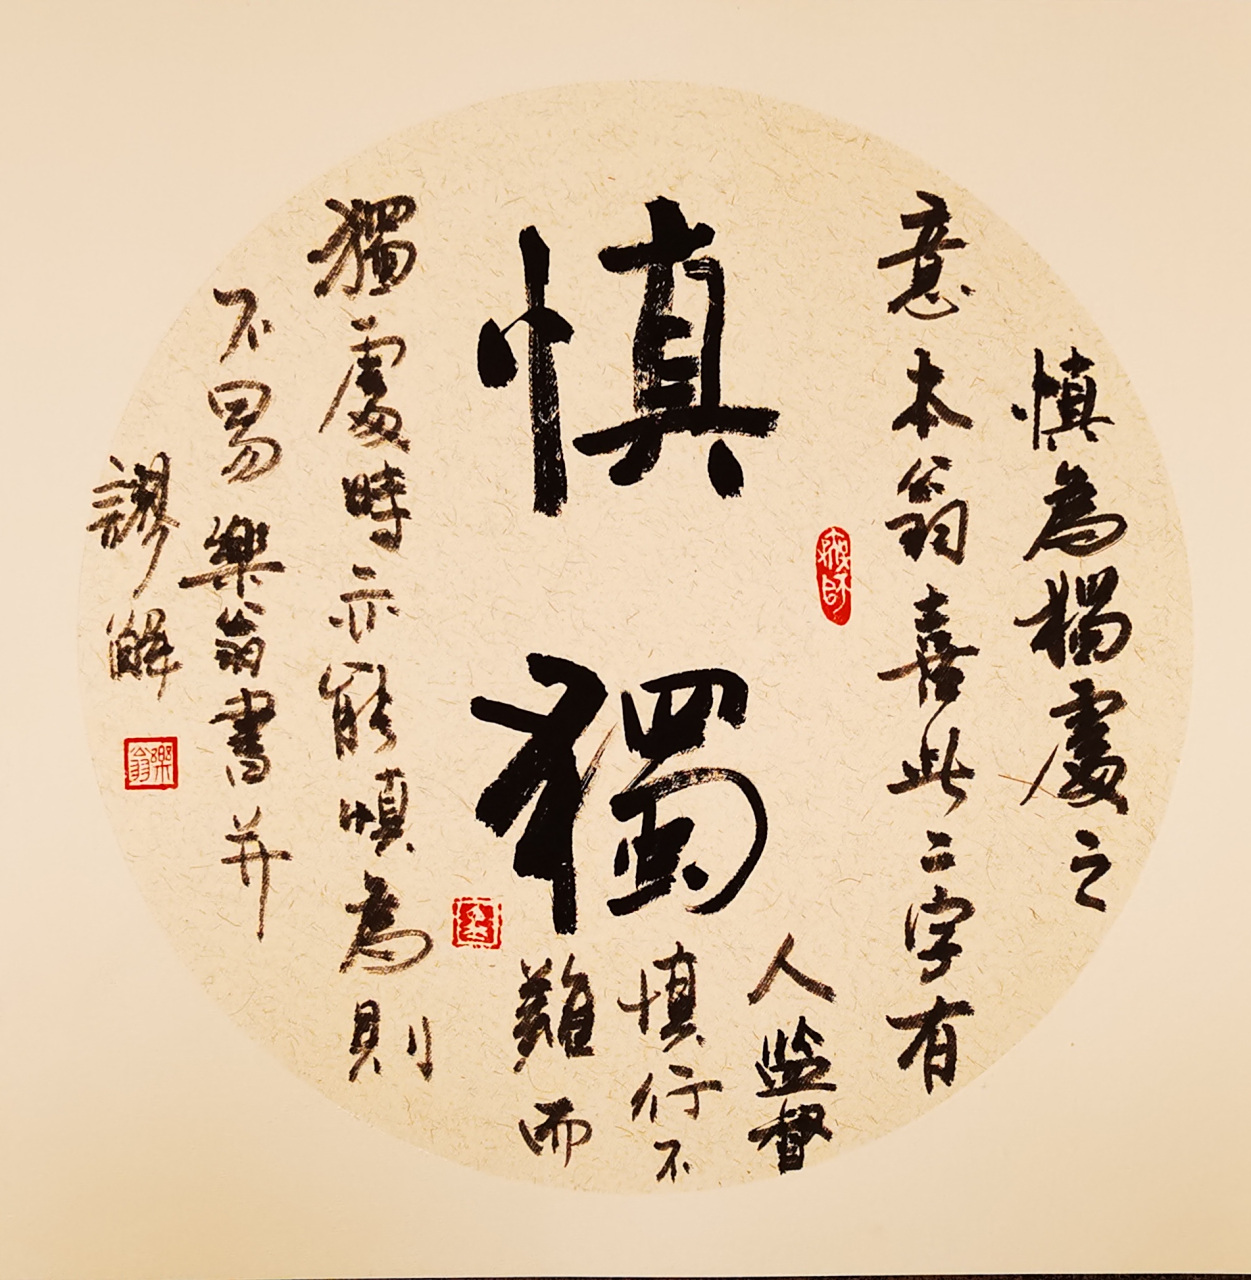 慎獨
慎為獨處之
意本翁喜此二字有
人监督
慎行不
難而
獨處時亦能慎為則
不易樂翁書并
謬解
樂翁